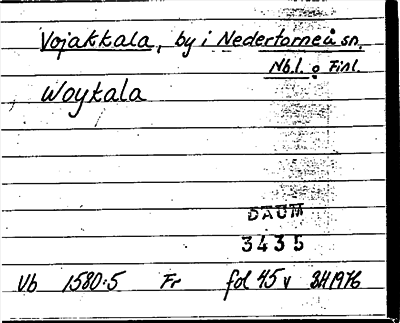 Vojakkala, by i Nedertorneå sn.
Nb.l. o Finl.
Woykala
DAUM
3435
Vb 1580:5 Fr fol 45 v BH 1976